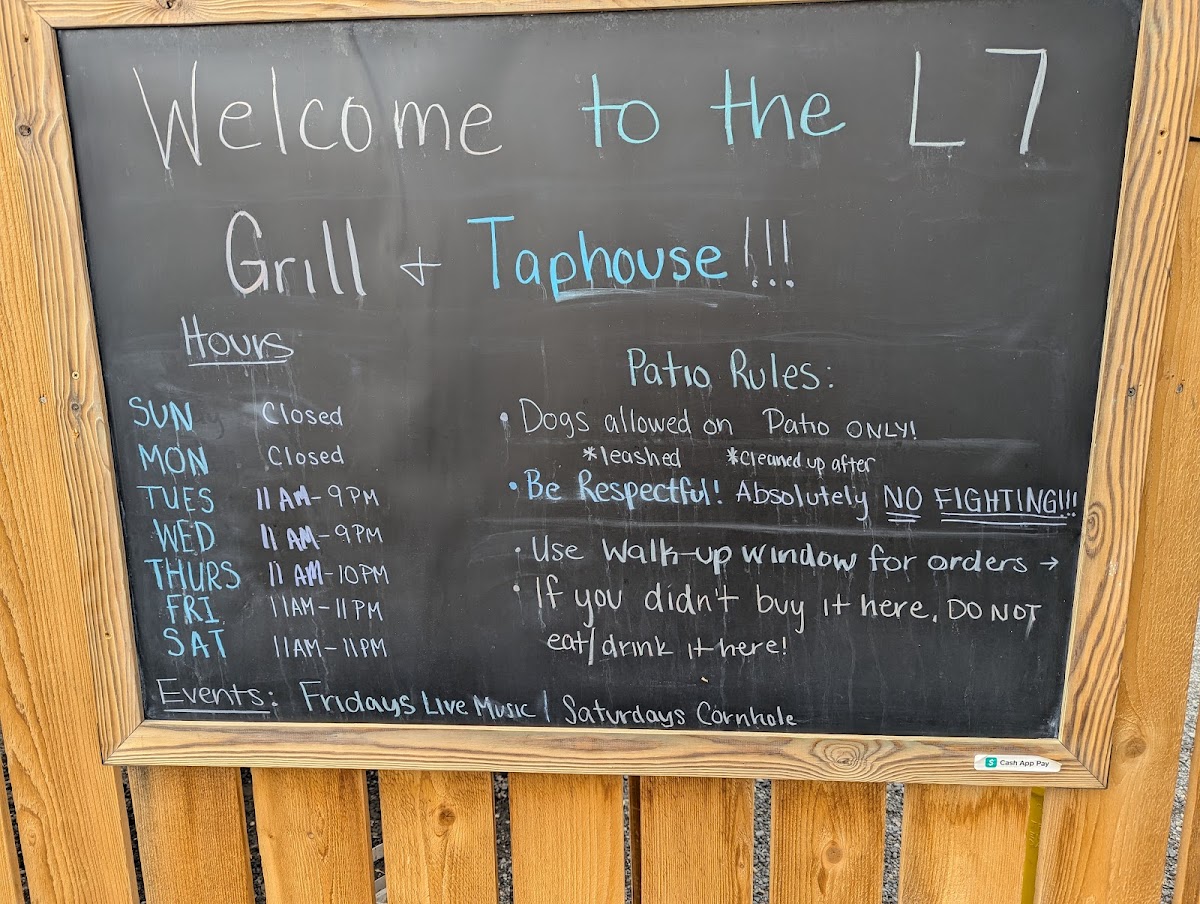 Welcome to the L7
Grill + Taphouse!!!
Hours
SUN Closed
MON Closed
TUES 11 AM-9 PM
WED 11 AM-9PM
THURS 11 AM-10PM
FRI 11AM-11 PM
SAT 11AM-11PM
Patio Rules:
• Dogs allowed on Patio ONLY!
*leashed *cleaned up after
• Be Respectful! Absolutely NO FIGHTING!!!
• Use Walk-up window for orders →
• If you didn't buy it here, DO NOT
eat/drink it here!
Events: Fridays Live Music | Saturdays Cornhole
$ Cash App Pay